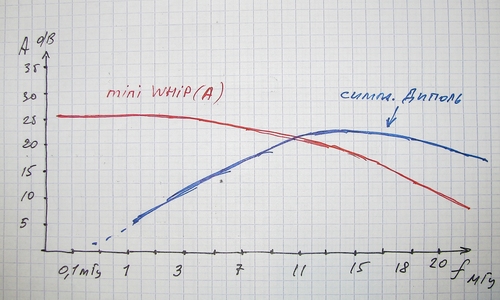 A дB
35
30
25
20
15
10
5
mini WHiP(A)
симм. Диполь
0,1мГц 1 3 7 11 15 18 20 f мГц